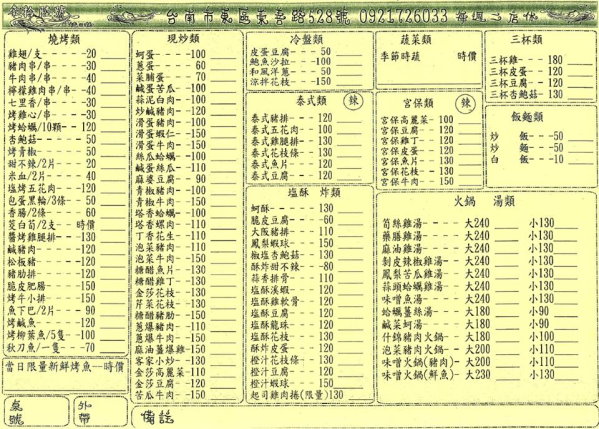 台南市東區東寧路528號 0921726033 每週二店休
燒烤類
雞翅/支----20
豬肉串/串----30
牛肉串/串----40
檸檬雞肉串/串----40
七里香/串----30
烤雞心/串----30
烤蛤蠣/10顆--120
杏鮑菇----50
烤青椒----50
甜不辣/2片----20
米血/2片----40
塩烤五花肉---120
包蛋黑輪/3條--50
香腸/2條----60
茭白荀/2支--時價
醬烤雞腿排---130
鹹豬肉----120
松板豬----120
豬肋排----120
脆皮肥腸----150
烤牛小排----150
魚下巴/2片---90
烤鹹魚----120
烤柳葉魚/5隻--100
秋刀魚/一隻---70
當日限量新鮮烤魚--時價
現炒類
蚵蛋----100
蔥蛋----60
菜脯蛋----70
鹹蛋苦瓜---100
蒜泥白肉---100
炒鹹豬肉---120
滑蛋豬肉---100
滑蛋蝦仁---150
滑蛋牛肉---150
絲瓜蛤蠣---100
鹹蛋絲瓜---110
麻婆豆腐---90
青椒豬肉---100
青椒牛肉---150
塔香蛤蠣---100
塔香螺肉---110
丁香花生---110
泡菜豬肉---110
泡菜牛肉---150
糖醋魚片---130
糖醋雞丁---110
金莎花枝---130
芹菜花枝---130
糖醋豬肋---150
蔥爆豬肉---110
蔥爆牛肉---150
麻油薑爆雞--150
客家小炒---130
金莎高麗菜--110
金莎豆腐---120
苦瓜牛肉---150
冷盤類
皮蛋豆腐---50
鮑魚沙拉---100
和風洋蔥---50
涼拌花枝---150
泰式類 辣
泰式豬排---120
泰式五花肉--100
泰式雞腿排--130
泰式花枝條--130
泰式魚片---130
泰式豆腐---120
塩酥 炸類
蚵酥----130
脆皮豆腐---60
大阪豬排---110
鳳梨蝦球---150
椒塩杏鮑菇--130
酥炸甜不辣--80
蒜香排骨---110
塩酥溪蝦---120
塩酥雞軟骨--120
塩酥豆腐---120
塩酥龍珠---120
塩酥花枝---130
酥炸皮蛋---120
橙汁花枝條--130
橙汁豆腐---120
橙汁蝦球---150
起司雞肉捲(限量)130
蔬菜類
季節時蔬 時價
宮保類 辣
宮保高麗菜--100
宮保豆腐---120
宮保雞丁---110
宮保皮蛋---120
宮保魚片---130
宮保花枝---130
宮保牛肉---150
三杯類
三杯雞---180
三杯皮蛋--120
三杯豆腐--120
三杯杏鮑菇-130
飯麵類
炒 飯---50
炒 麵---50
白 飯---10
火鍋 湯類
荀絲雞湯---大240 小130
藥膳雞湯---大240 小130
麻油雞湯---大240 小130
剝皮辣椒雞湯--大240 小130
鳳梨苦瓜雞湯--大240 小130
蒜頭蛤蠣雞湯--大240 小130
味噌魚湯---大240 小130
蛤蠣薑絲湯---大180 小90
鹹菜蚵湯---大180 小90
什錦豬肉火鍋--大180 小100
泡菜豬肉火鍋--大200 小110
味噌火鍋(豬肉)-大200 小110
味噌火鍋(鮮魚)-大230 小130
桌號
外帶
備註